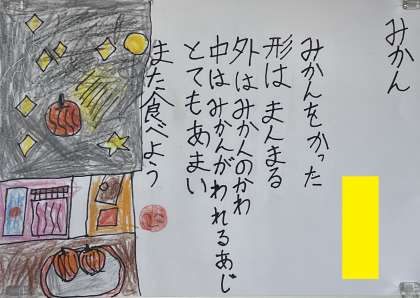 みかん
みかんをかった
形は まんまる
外はみかんのかわ
中はみかんがわれるあじ
とてもあまい
また食べよう